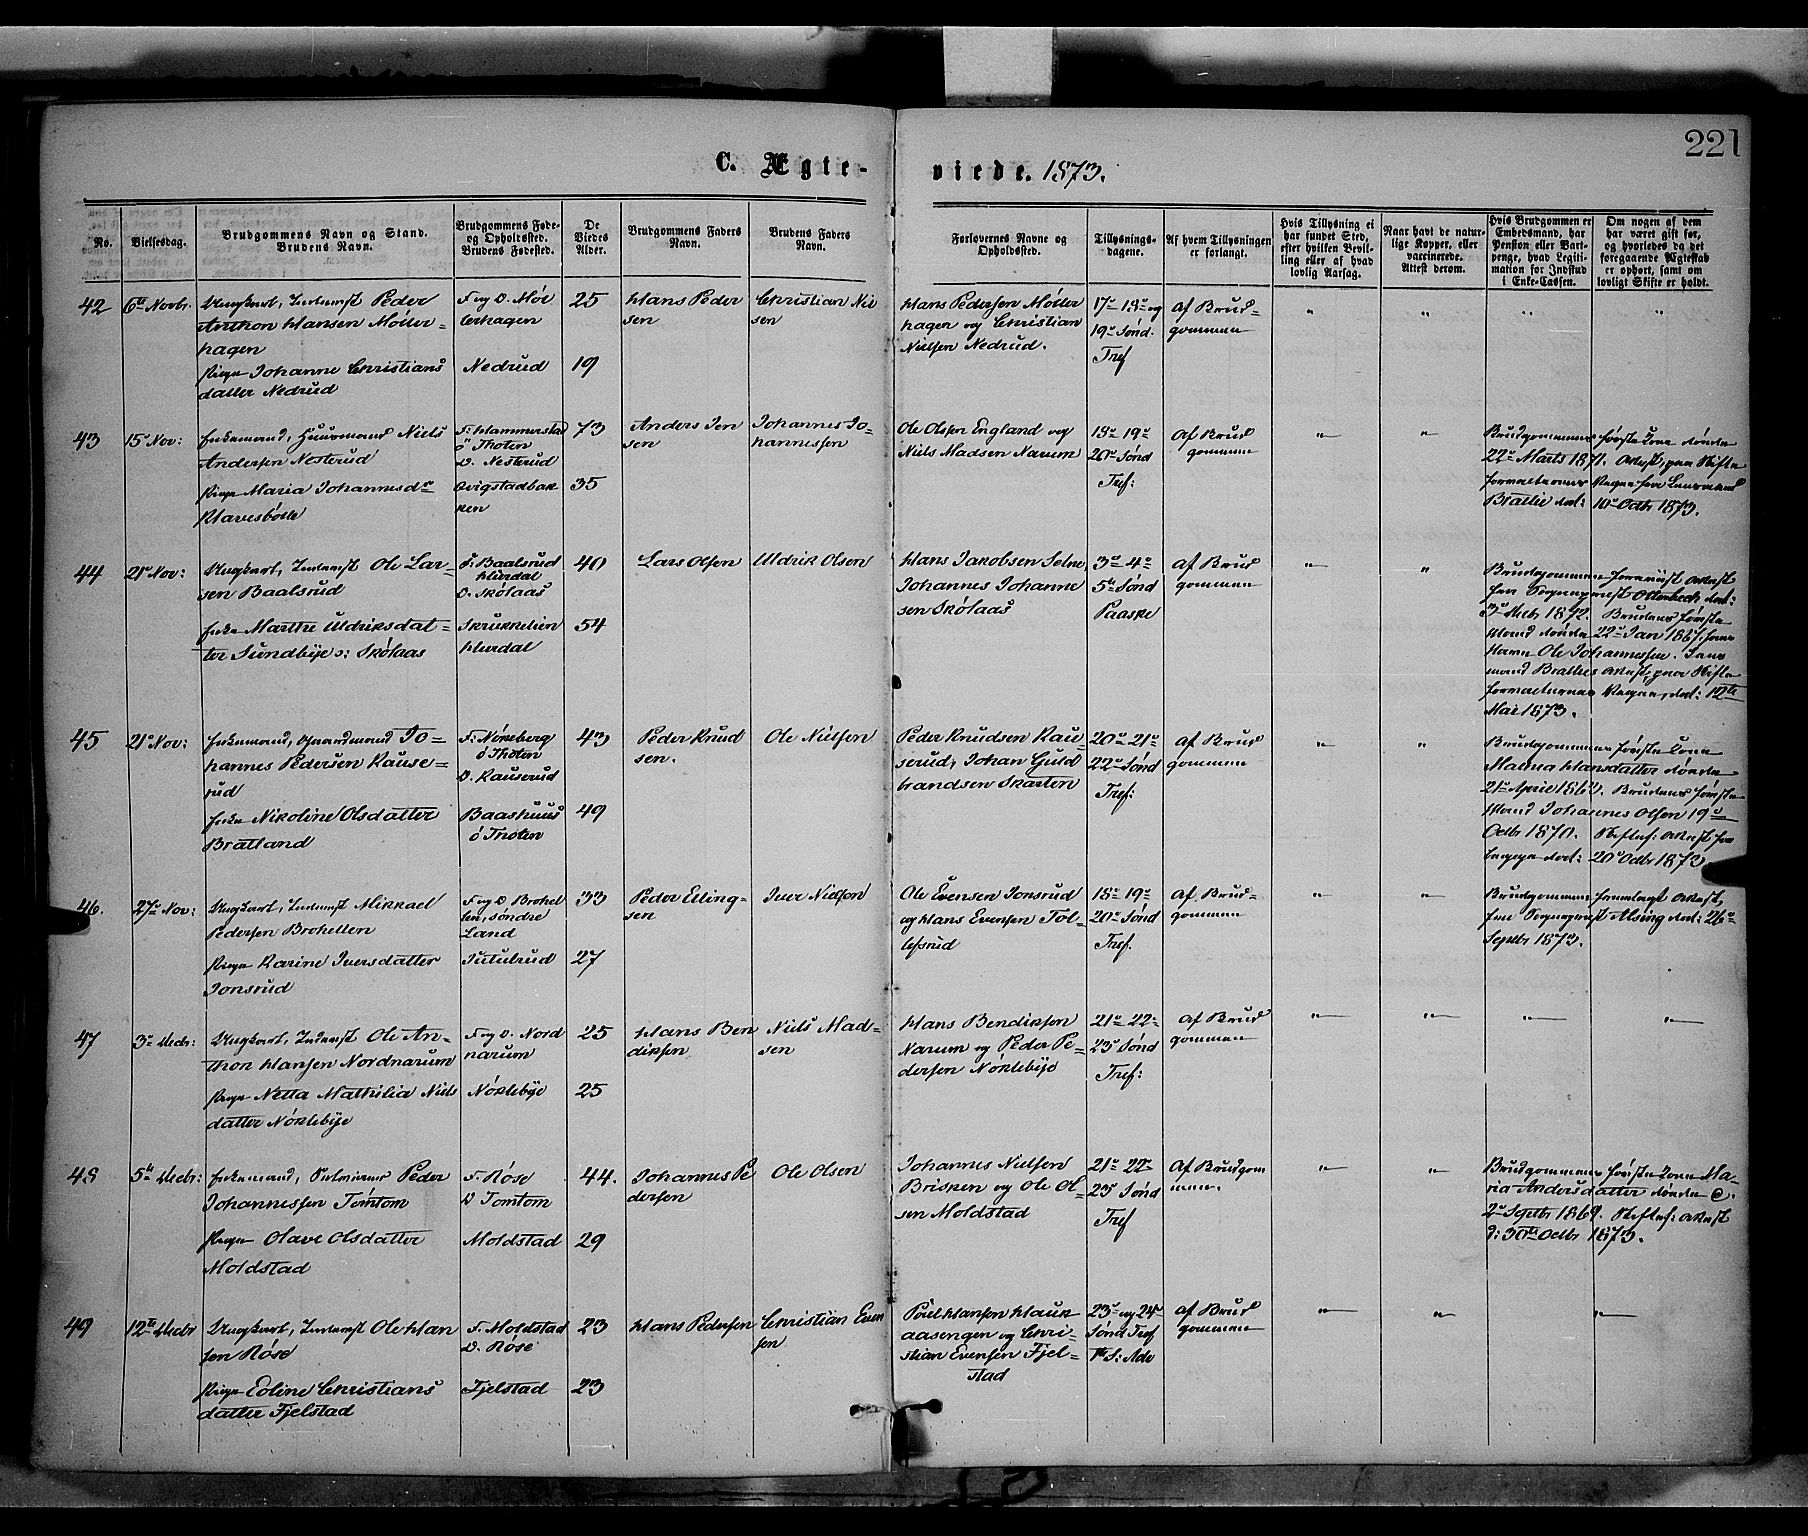 221
C. Ægte-
viede. 1873.
No.
Vielsesdag.
Brudgommens Navn og Stand.
Brudens Navn.
Brudgommens Føde-
og Opholdssted.
Brudens Fødested.
De
Viedes
Alder.
Brudgommens Faders
Navn.
Brudens Faders
Navn.
Forlovernes Navne og
Opholdssted.
Tillysnings-
dagene.
Af hvem Tillysningen
er forlangt.
Hvis Tillysning ei
har fundet Sted,
efter hvilken Bevil-
ling eller af hvad
lovlig Aarsag.
Naar havt de natur-
lige Kopper, eller
vaccinerede.
Attest derom.
Hvis Brudgommen er
Embedsmand, har
Pension eller Vart-
penge, hvad Legiti-
mation for Indskud
i Enke-Cassen.
Om nogen af dem
har været gift før,
og hvorledes da det
foregaaende Ægteskab
er ophørt, samt om
lovligt Skifte er holdt.
42
6te Novbr.
Ungkarl, Inderst Peder
Anthon Hansen Møller-
hagen
Pige Johanne Christians
datter Nedrud
F. og O. Møl
lerhagen
Nedrud
25
19
Hans Peder
sen
Christian Niel
sen
Hans Pedersen Møller
hagen og Christian
Nielsen Nedrud.
17de 18de og
19de Sønd:
Tref
Af Brud-
gommen
43
15de Nov:
Enkemand, Huusmand Niels
Andersen Nesterud
Pige Maria Johannesdr
Klavesbølle
F: Hammerstad
ö Thoten
O. Nesterud
Qvigstadbak
ken
73
35
Anders Jen
sen
Johannes Jo-
hannessen
Ole Olsen England og
Niels Madsen Narum
18de 19de
20de Sønd
Tref:
Af Brud
gommen
Brudgommens første Kone døde
22de Marts 1871. Attest paa Skifte
formalternes Iagttagelse Lensmand
Brattlie dat: 10de Octbr 1873.
44
21de Nov:
Ungkarl, Inderst Ole Lar-
sen Baalsrud
Enke Marthe Uldriksdat-
ter Sundbye o: Skølaas
F: Baalsrud
Hurdal
O. Skølaas
Skrukkelien
Hurdal
40
54
Lars Olsen
Uldrik Olsen
Hans Jakobsen Selne
Johannes Johanne
sen Skølaas
3de 4de
5te Sønd
Paaske
Af Brud
gommen
Brudgommen foreviist Attest
fra Sognepræst Otterbech dat:
1872. Brudens første
Mand døde 22de Jan 1867.
Navn Ole Johannessen. Lens
mand Brattlies Attest paa Skifte
dat: 12te
Mai 1873.
45
21de Nov:
Enkemand, Gaardmand Jo-
hannes Pedersen Kause-
rud
Enke Nikoline Olsdatter
Bratland
F: Nøkeberg
ö Thoten
O. Kauserud
Baashuus
ö Thoten
43
49
Peder Knud
sen.
Ole Nielsen
Peder Knudsen Kau-
serud, Johan Guld
brandsen Skarten
20de 21de
22de Sønd
Tref:
Af Brud
gommen
Brudgommens første Kone
Hansdatter døde
21de April 1862. Brudens første
Mand Johannes Olsen 19de
Octbr 1870. Skiftef: Attest fra
dat: 20de Octbr 1873
46.
27de Nov:
Ungkarl, Inderst Mikkael
Pedersen Brohellen
Pige Karine Iversdatter
Jonsrud
F. og O Brohel
len, søndre
Land
Tutulrud
33
27
Peder Elling-
sen
Iver Nielsen
Ole Evensen Jonsrud
og Hans Evensen Tol-
lefsrud
18de 19de
20de Sønd
Tref.
Af Brud-
gommen
Brudgommen fremlagt Attest
fra Sognepræst Alsing dat: 26de
Septbr 1873.
47
3de Decbr:
Ungkarl, Inderst Ole An-
thon Hansen Nordnarum
Pige Netta Mathilia Niels
datter Nøklebye
F. og O. Nord
narum
Nøklebye
25
25
Hans Ben
diksen
Niels Mad-
sen
Hans Bendiksen
Narum og Peder Pe-
dersen Nøklebye
21de 22de
23de Sønd
Tref:
Af Brud
gommen
48
5te Decbr:
Enkemand, Selveier Peder
Johannessen Tømtom
Pige Olave Olsdatter
Moldstad
F. Røse
O Tomtom
Moldstad
44.
29
Johannes Pe
dersen
Ole Olsen
Johannes Nielsen
Brisken og Ole Ol-
sen Moldstad
21de 22de
23de Sønd
Tref
Af Brudgom
men.
Brudgommens første Kone Ma-
ria Andersdatter døde
2de Septbr 1869. Skiftef: Attest
d: 30te Octbr 1873.
49
12te Decbr
Ungkarl, Inderst Ole Han
sen Røse
Pige Edline Christians
datter Fjelstad
F. Moldstad
O. Røse
Fjelstad
23
23
Hans Pedersen
Christian Even
sen
Poul Hansen Hauk
aasengen og Chri-
stian Evensen Fjel-
stad
23de og 24de
Sønd Tref
1ste S: Adv
Af Brud
gommen